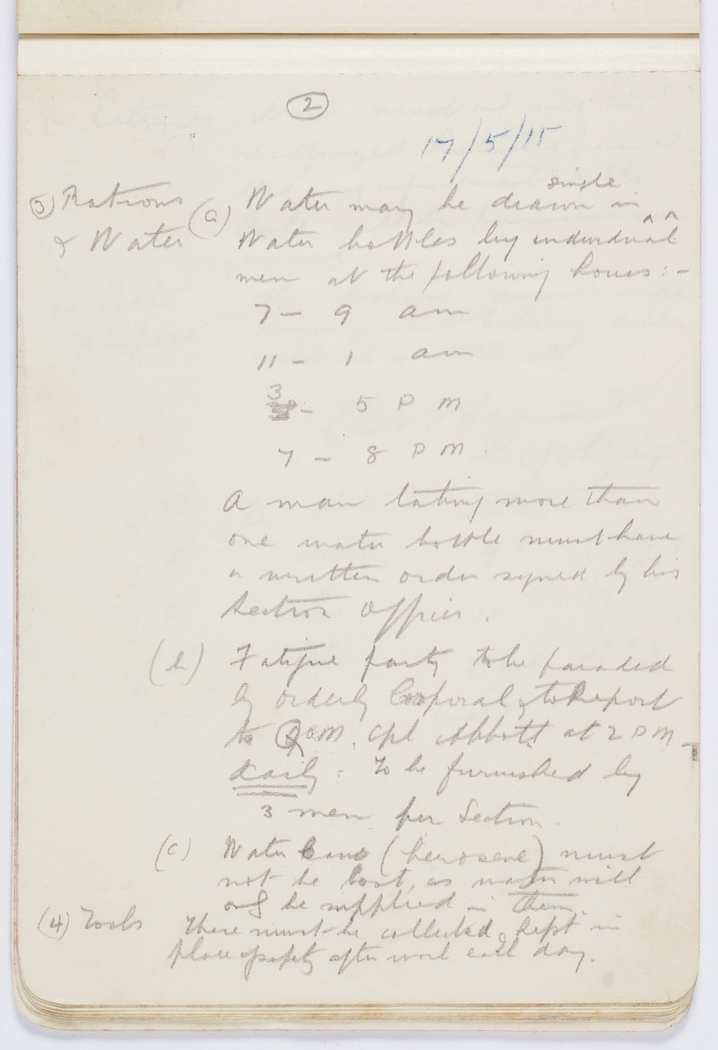 2
17/5/15
3) Rations & Water
(a) Water may be drawn in single
Water bottles by individual
men at the following hours:-
7 - 9 am
11 - 1 am
3 - 5 PM
7 - 8 PM.
A man taking more than
one water bottle must have
a written order signed by his
Section Officer.
(b) Fatigue party to be paraded
by orderly Corporal, & to Report
to QM, Cpl Abbott at 2 PM
daily - To be furnished by
3 men per Section.
(c) Water Cans (kerosene) must
not be lost, as water will
only be supplied in them.
(4) Tools These must be collected & kept in
place of safety after work each day.